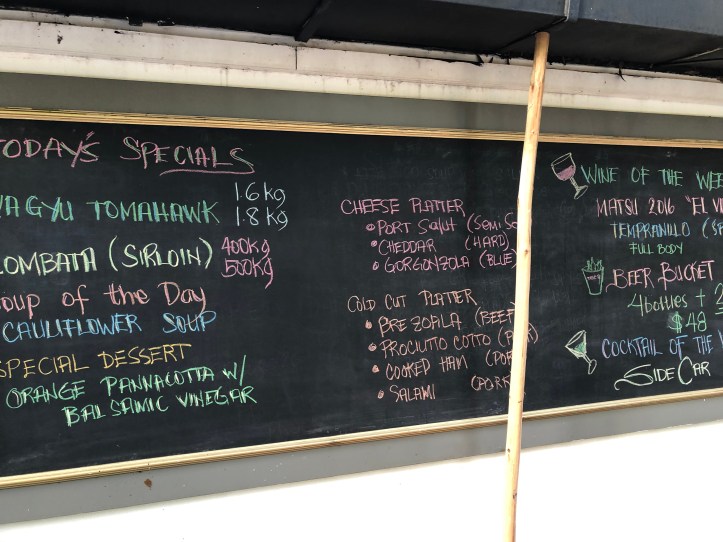 TODAY'S SPECIALS
WAGYU TOMAHAWK 1.6 kg
1.8 kg
LOMBATA (SIRLOIN) 400kg
500kg
Soup of the Day
CAULIFLOWER SOUP
SPECIAL DESSERT
ORANGE PANNACOTTA W/
BALSAMIC VINEGAR
CHEESE PLATTER
• PORT SALUT (SEMI SO
• CHEDDAR (HARD)
• GORGONZOLA (BLUE)
COLD CUT PLATTER
• BREZOALA (BEEF
• PROCIUTTO COTTO (P
• COOKED HAM (POR
• SALAMI (PORK
WINE OF THE WEE
MATSU 2016 "EL VI
TEMPRANILLO (SP
FULL BODY
BEER BUCKET
4 bottles +
$48
COCKTAIL OF THE W
SIDE CAR